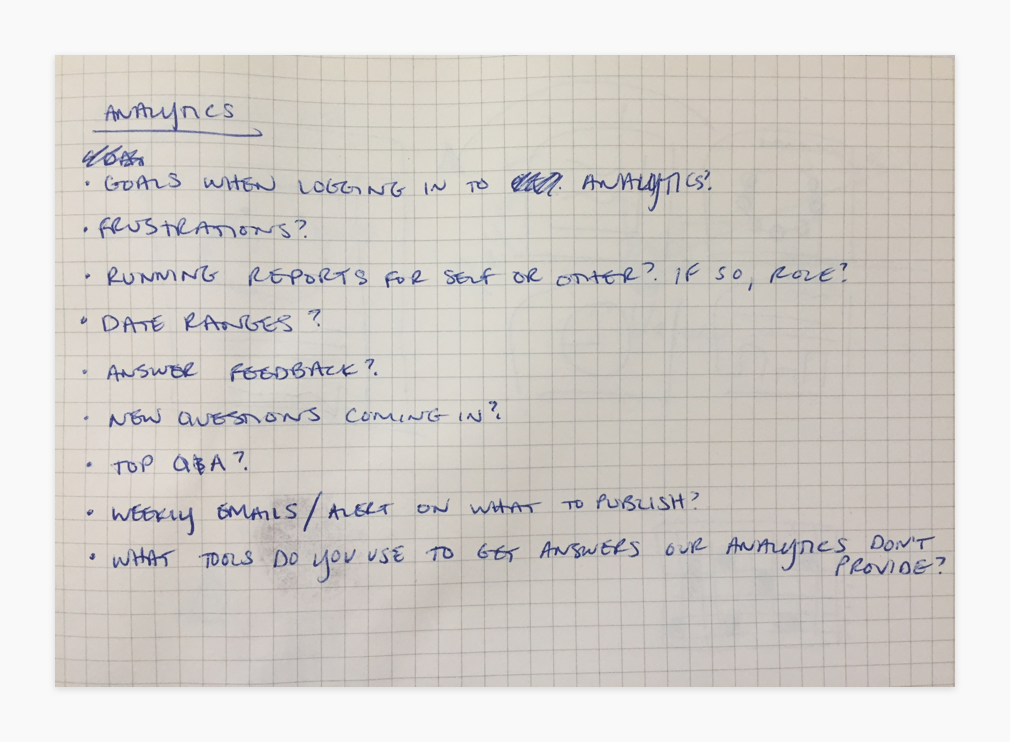 ANALYTICS
· GOALS WHEN LOGGING IN TO ANALYTICS?
· FRUSTRATIONS?
· RUNNING REPORTS FOR SELF OR OTHER? IF SO, ROLE?
· DATE RANGES?
· ANSWER FEEDBACK?
· NEW QUESTIONS COMING IN?
· TOP Q&A?
· WEEKLY EMAILS/ALERT ON WHAT TO PUBLISH?
· WHAT TOOLS DO YOU USE TO GET ANSWERS OUR ANALYTICS DON'T
PROVIDE?